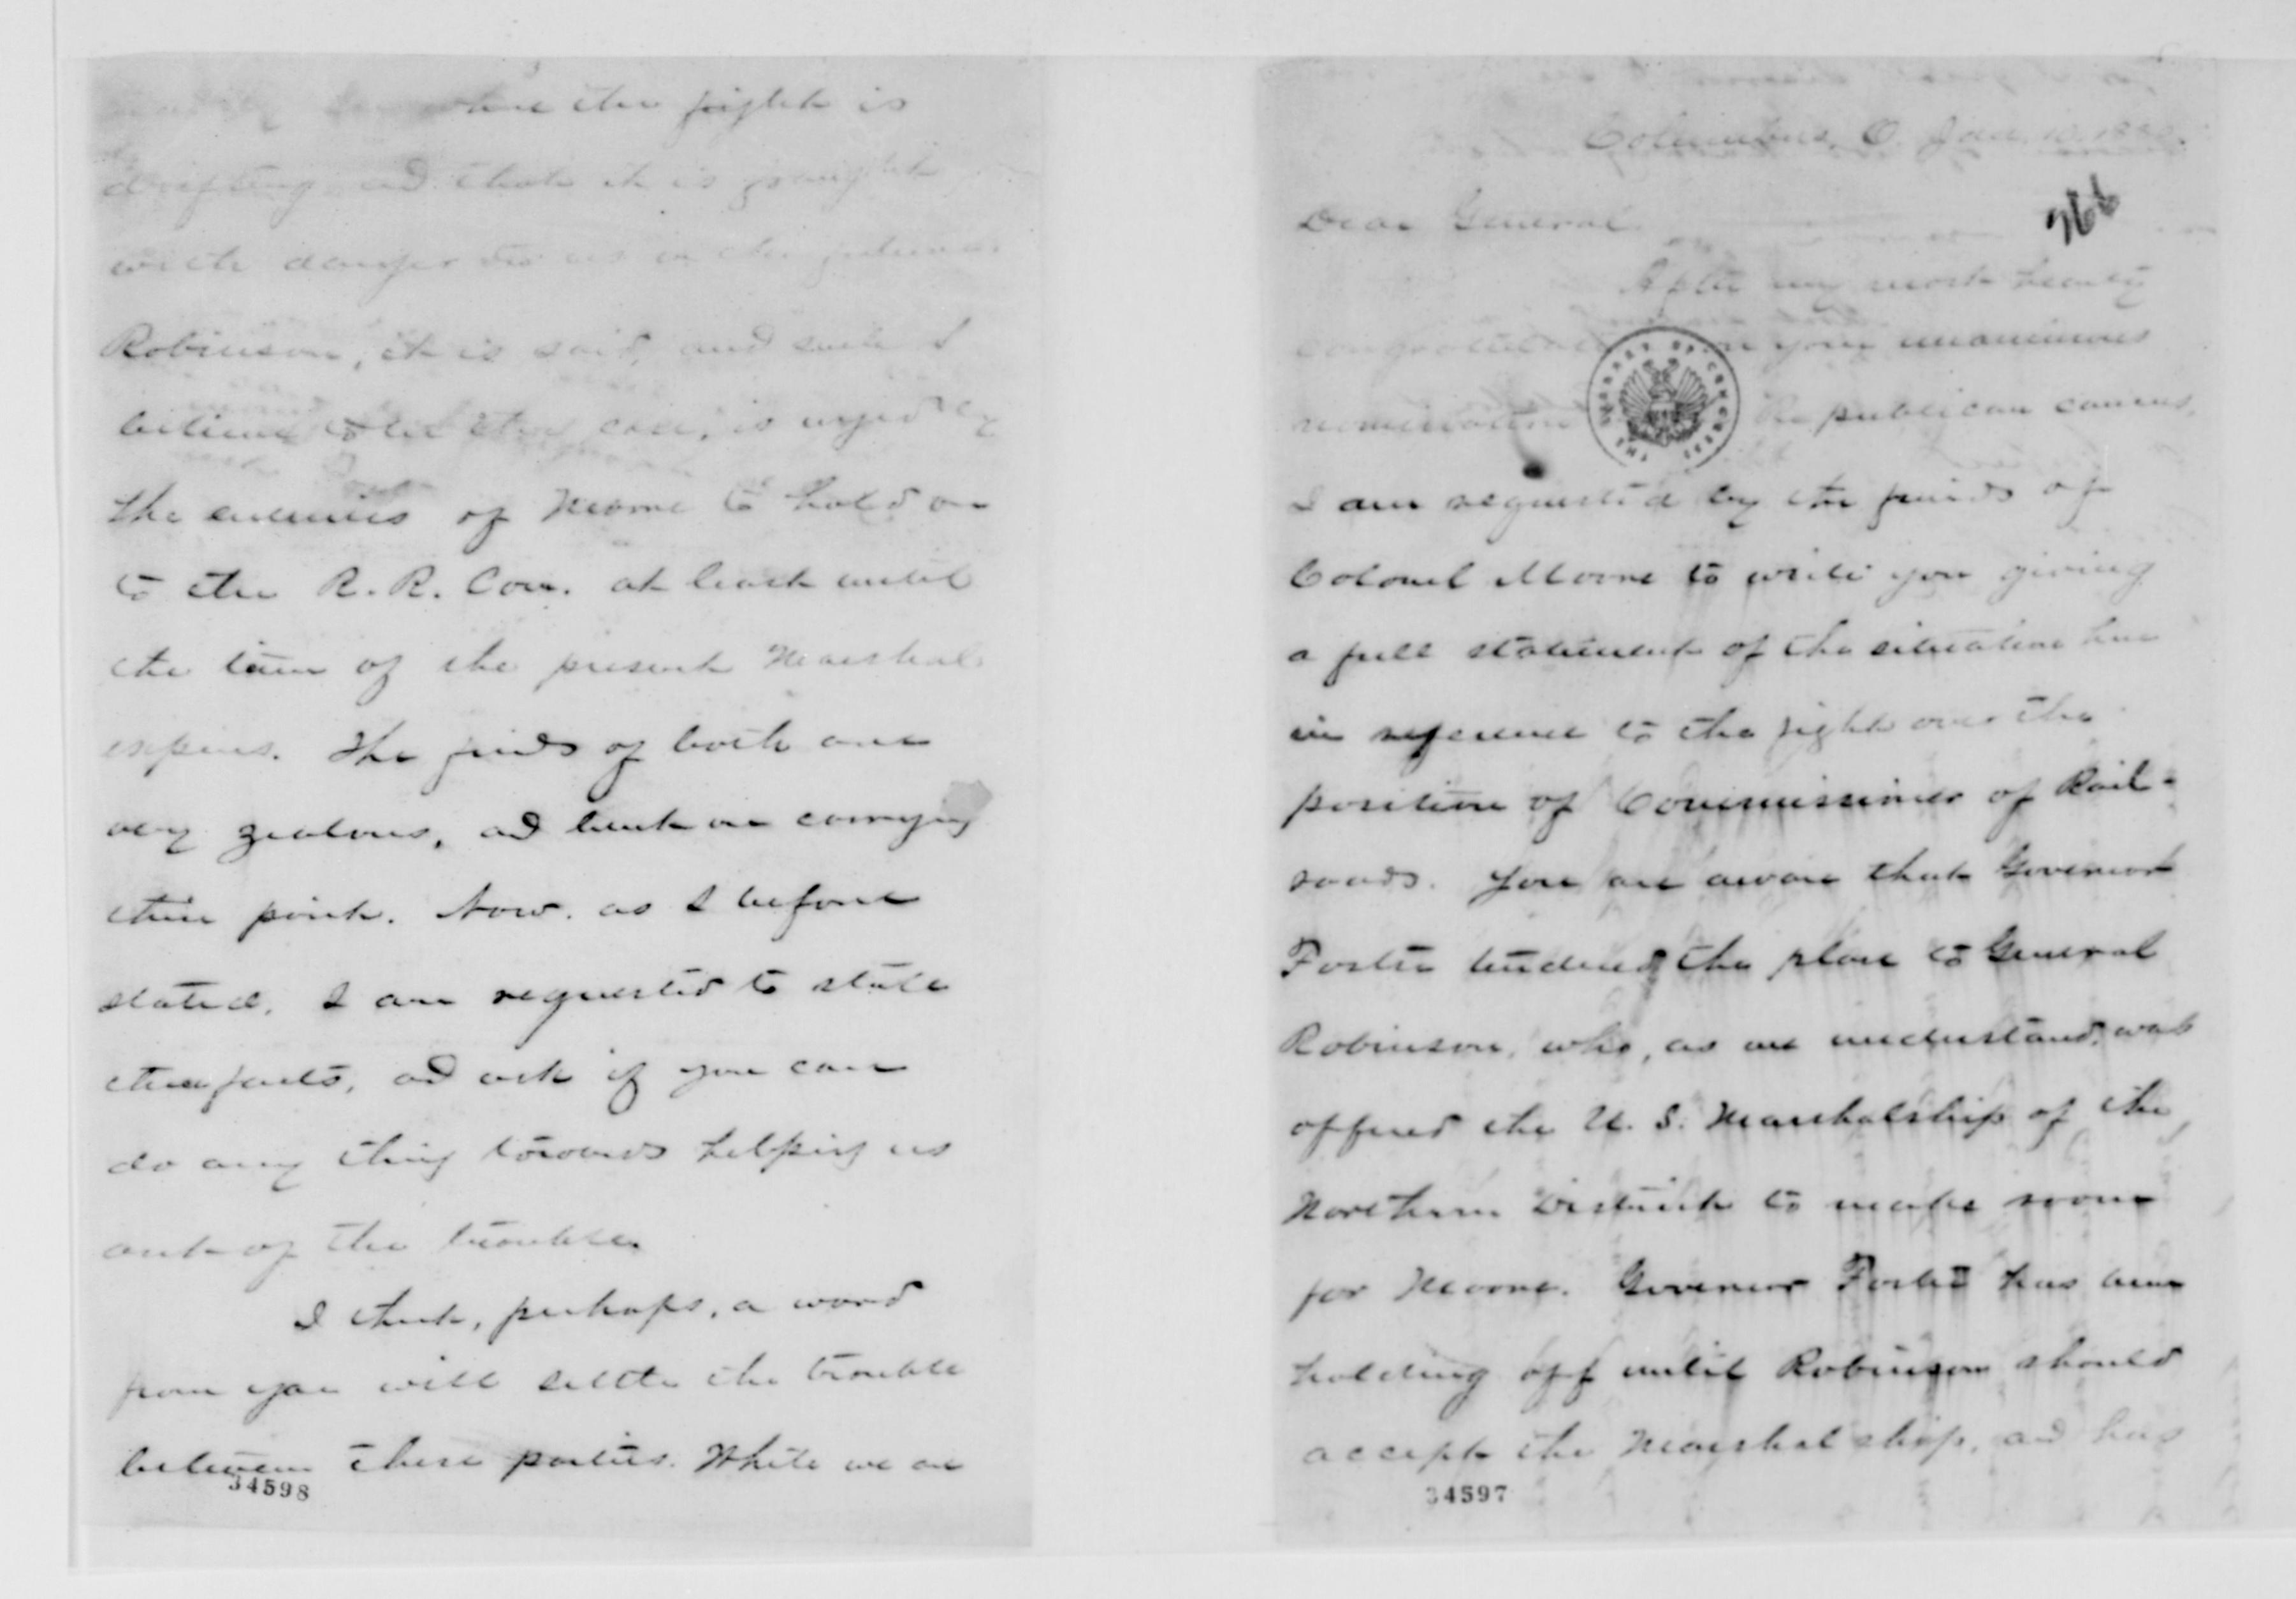 where the fight is
drifting, and that it is fraught
with danger to us in the future.
Robinson, it is said, and such I
believe to be the case, is urged by
the enemies of Moore to hold on
to the R. R. Com. at least until
the term of the present Marshal
expires. The friends of both are
very zealous, and bent on carrying
their point. Now, as I before
stated, I am requested to state
these facts, and ask if you can
do any thing towards helping us
out of the trouble.
I think, perhaps, a word
from you will settle the trouble
between these parties. While we are
34598
Columbus, O. Jan. 10. 1880.
Dear General
966
After my most hearty
congratulations on your unanimous
nomination Republican caucus,
THE LIBRARY OF CONGRESS
I am requested by the friends of
Colonel Moore to write you giving
a full statement of the situation here
in reference to the fight over the
position of Commissioner of Rail-
roads. You are aware that Governor
Foster tendered the place to General
Robinson, who, as we understand, was
offered the U. S. Marshalship of the
Northern District to make room
for Moore. Governor Foster has been
holding off until Robinson should
accept the Marshalship, and has
34597